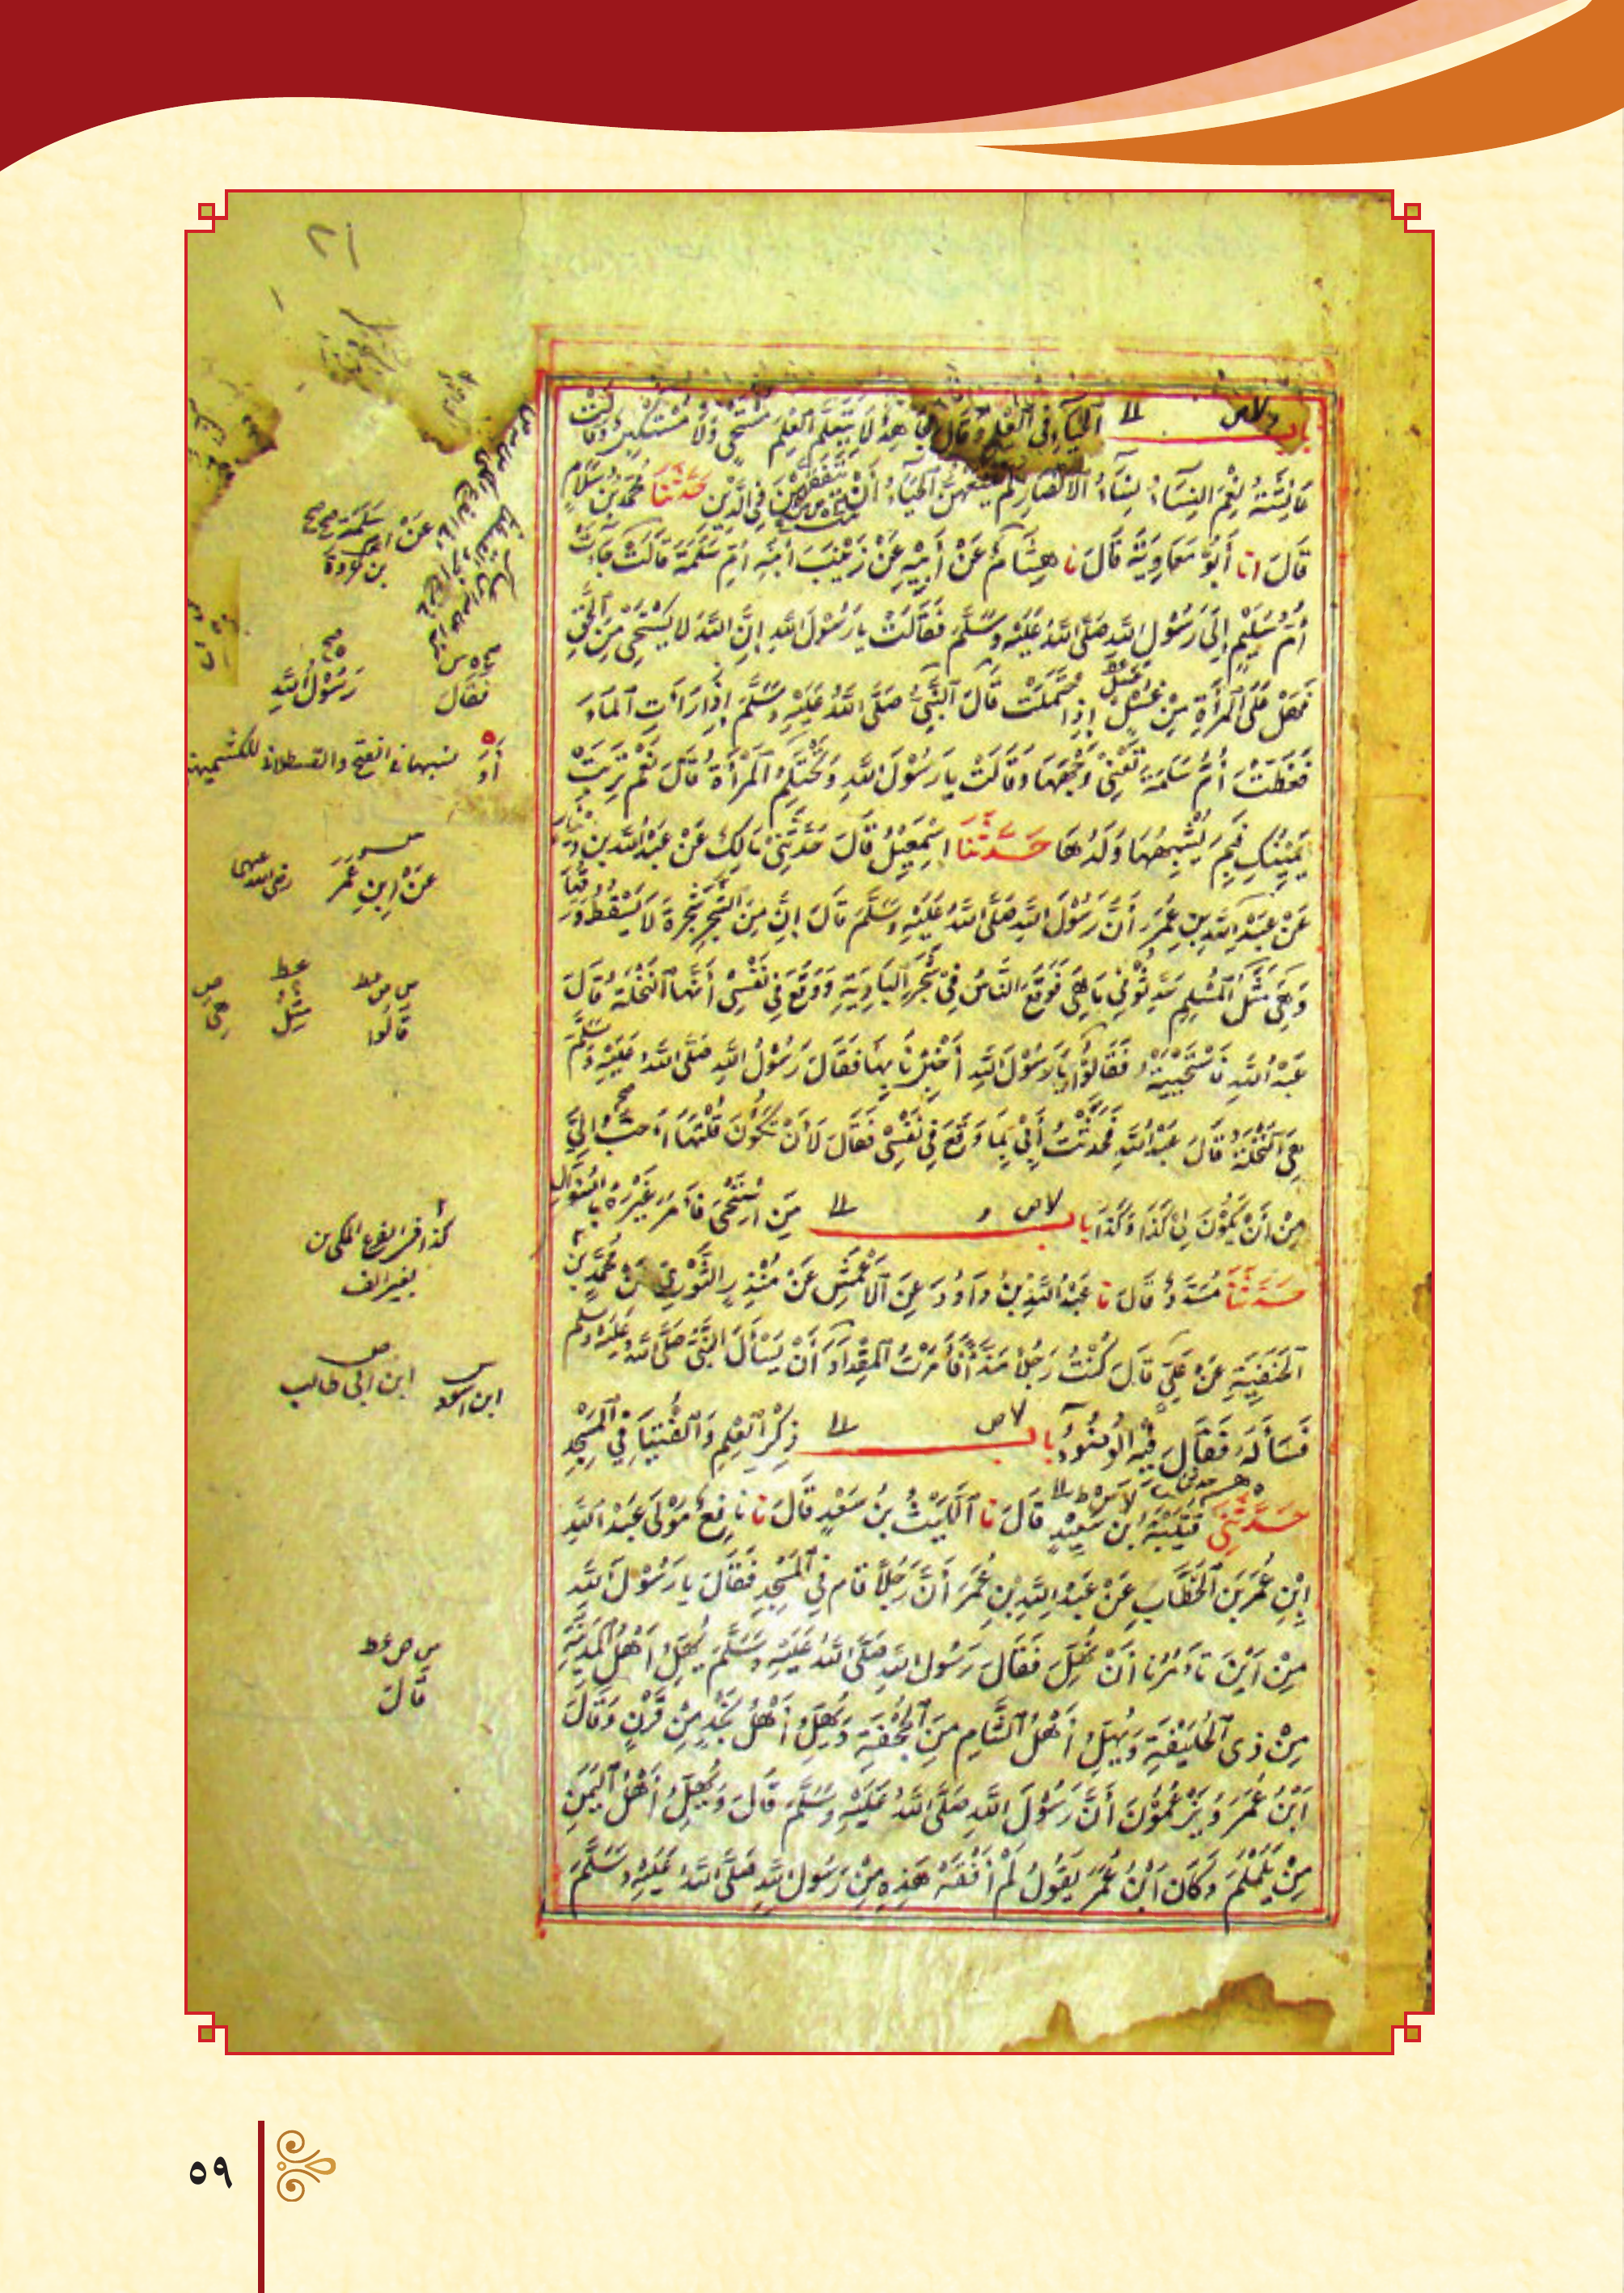 ٢١
باب الحَيَاءِ فِي العِلْمِ وَقَالَ مُجَاهِدٌ لَا يَتَعَلَّمُ العِلْمَ مُسْتَحْيٍ وَلَا مُسْتَكْبِرٌ وَقَالَتْ
عَائِشَةُ نِعْمَ النِّسَاءُ نِسَاءُ الأَنْصَارِ لَمْ يَمْنَعْهُنَّ الحَيَاءُ أَنْ يَتَفَقَّهْنَ فِي الدِّينِ حَدَّثَنَا مُحَمَّدُ بْنُ سَلَامٍ
قَالَ انا أَبُو مُعَاوِيَةَ قَالَ نا هِشَامٌ عَنْ أَبِيهِ عَنْ زَيْنَبَ ابْنَةِ أُمِّ سَلَمَةَ قَالَتْ جَاءَتْ
أُمُّ سُلَيْمٍ إِلَى رَسُولِ اللَّهِ صَلَّى اللَّهُ عَلَيْهِ وَسَلَّمَ فَقَالَتْ يَا رَسُولَ اللَّهِ إِنَّ اللَّهَ لَا يَسْتَحْيِي مِنَ الحَقِّ
فَهَلْ عَلَى المَرْأَةِ مِنْ غُسْلٍ إِذَا احْتَلَمَتْ قَالَ النَّبِيُّ صَلَّى اللَّهُ عَلَيْهِ وَسَلَّمَ إِذَا رَأَتِ المَاءَ
فَغَطَّتْ أُمُّ سَلَمَةَ تَعْنِي وَجْهَهَا وَقَالَتْ يَا رَسُولَ اللَّهِ وَتَحْتَلِمُ المَرْأَةُ قَالَ نَعَمْ تَرِبَتْ
يَمِينُكِ فَبِمَ يُشْبِهُهَا وَلَدُهَا حَدَّثَنَا اسْمٰعِيْلُ قَالَ حَدَّثَنِي مَالِكٌ عَنْ عَبْدِ اللَّهِ بْنِ دِينَارٍ
عَنْ عَبْدِ اللَّهِ بْنِ عُمَرَ أَنَّ رَسُولَ اللَّهِ صَلَّى اللَّهُ عَلَيْهِ وَسَلَّمَ قَالَ إِنَّ مِنَ الشَّجَرِ شَجَرَةً لَا يَسْقُطُ وَرَقُهَا
وَهِيَ مَثَلُ المُسْلِمِ حَدِّثُونِي مَا هِيَ فَوَقَعَ النَّاسُ فِي شَجَرِ البَادِيَةِ وَوَقَعَ فِي نَفْسِي أَنَّهَا النَّخْلَةُ قَالَ
عَبْدُ اللَّهِ فَاسْتَحْيَيْتُ فَقَالُوا يَا رَسُولَ اللَّهِ أَخْبِرْنَا بِهَا فَقَالَ رَسُولُ اللَّهِ صَلَّى اللَّهُ عَلَيْهِ وَسَلَّمَ
هِيَ النَّخْلَةُ قَالَ عَبْدُ اللَّهِ فَحَدَّثْتُ أَبِي بِمَا وَقَعَ فِي نَفْسِي فَقَالَ لَأَنْ تَكُونَ قُلْتَهَا أَحَبُّ إِلَيَّ
مِنْ أَنْ يَكُونَ لِي كَذَا وَكَذَا باب مَنِ اسْتَحْيَى فَأَمَرَ غَيْرَهُ بِالسُّؤَالِ
حَدَّثَنَا مُسَدَّدٌ قَالَ نا عَبْدُ اللَّهِ بْنُ دَاوُدَ عَنِ الأَعْمَشِ عَنْ مُنْذِرٍ الثَّوْرِيِّ عَنْ مُحَمَّدِ بْنِ
الحَنَفِيَّةِ عَنْ عَلِيٍّ قَالَ كُنْتُ رَجُلًا مَذَّاءً فَأَمَرْتُ المِقْدَادَ أَنْ يَسْأَلَ النَّبِيَّ صَلَّى اللَّهُ عَلَيْهِ وَسَلَّمَ
فَسَأَلَهُ فَقَالَ فِيهِ الوُضُوءُ باب ذِكْرِ العِلْمِ وَالفُتْيَا فِي المَسْجِدِ
حَدَّثَنِي قُتَيْبَةُ بْنُ سَعِيدٍ قَالَ نا اللَّيْثُ بْنُ سَعْدٍ قَالَ نا نَافِعٌ مَوْلَى عَبْدِ اللَّهِ
ابْنِ عُمَرَ بْنِ الخَطَّابِ عَنْ عَبْدِ اللَّهِ بْنِ عُمَرَ أَنَّ رَجُلًا قَامَ فِي المَسْجِدِ فَقَالَ يَا رَسُولَ اللَّهِ
مِنْ أَيْنَ تَأْمُرُنَا أَنْ نُهِلَّ فَقَالَ رَسُولُ اللَّهِ صَلَّى اللَّهُ عَلَيْهِ وَسَلَّمَ يُهِلُّ أَهْلُ المَدِينَةِ
مِنْ ذِي الحُلَيْفَةِ وَيُهِلُّ أَهْلُ الشَّامِ مِنَ الجُحْفَةِ وَيُهِلُّ أَهْلُ نَجْدٍ مِنْ قَرْنٍ وَقَالَ
ابْنُ عُمَرَ وَيَزْعُمُونَ أَنَّ رَسُولَ اللَّهِ صَلَّى اللَّهُ عَلَيْهِ وَسَلَّمَ قَالَ وَيُهِلُّ أَهْلُ اليَمَنِ
مِنْ يَلَمْلَمَ وَكَانَ ابْنُ عُمَرَ يَقُولُ لَمْ أَفْقَهْ هَذِهِ مِنْ رَسُولِ اللَّهِ صَلَّى اللَّهُ عَلَيْهِ وَسَلَّمَ
عَنْ سَلَمَةَ
رَسُوْلُ اللَّهِ
فَقَالَ
الفتح والقسطلاني للكشميهني
عَنْ ابْنِ عُمَرَ رضي الله عنهما
قَالُوا
مِثْلُ
هي
كذا في الفرع المكي من
بغير الف
ابن أبي طالب
ابن الاسود
س ص عط
قَالَ
٥٩